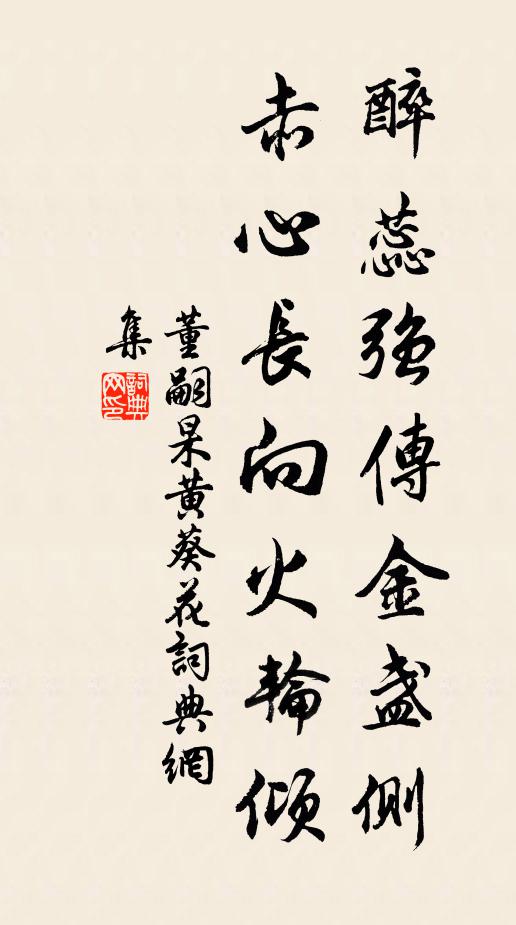 醉蕊強傳金盞側
赤心長向火輪傾
董嗣杲黃葵花詞典網
集
詞典网印